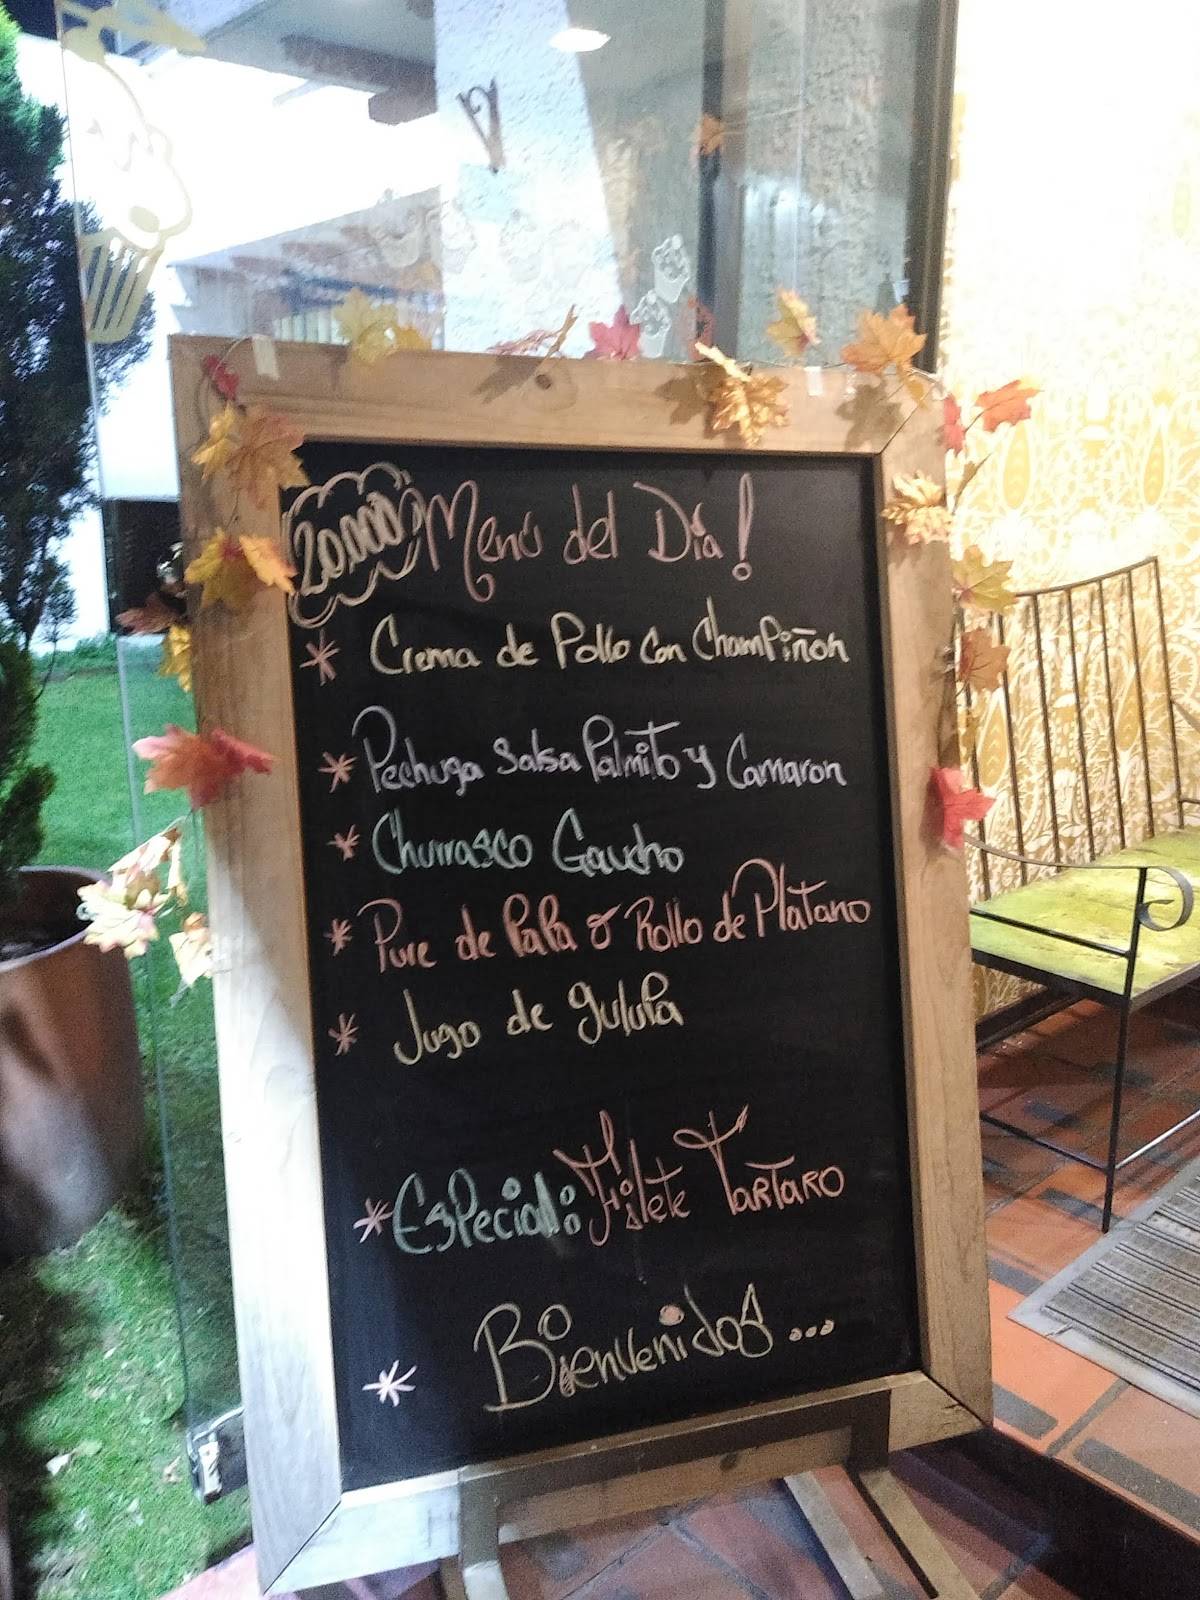 20.000 Menú del Día!
* Crema de Pollo con Champiñon
* Pechuga Salsa Palmito y Camaron
* Churrasco Gaucho
* Pure de Papa o Rollo de Platano
* Jugo de gulupa
* Especial: Filete Tartaro
* Bienvenidos...